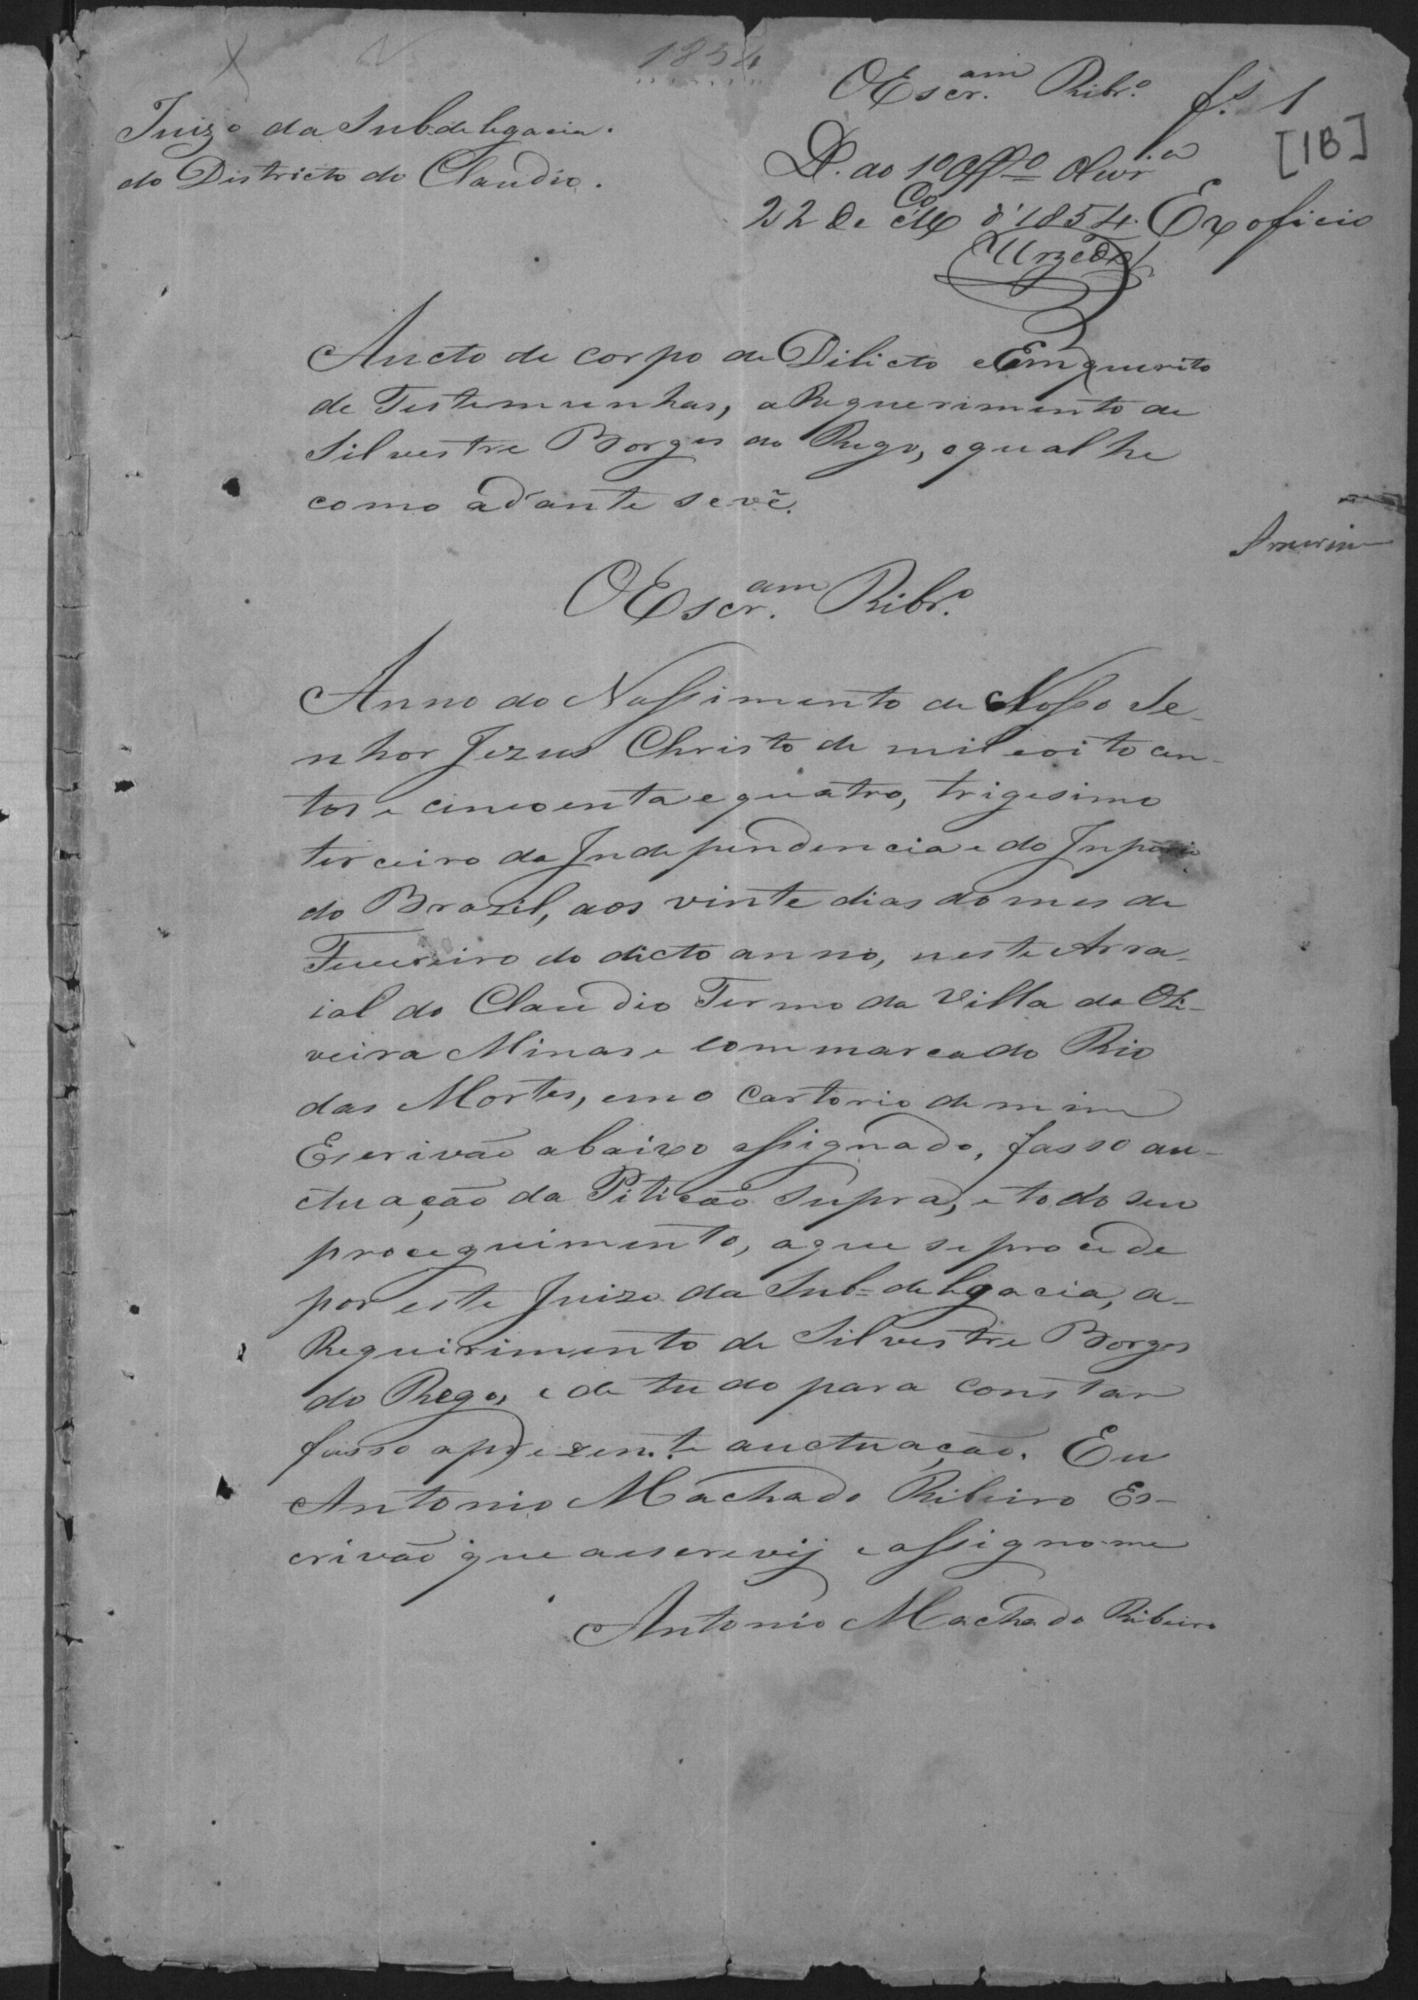 1854
O Escr.am Ribr.o fs 1
[1B]
Juizo da Subdelegacia.
do Districto do Claudio.
D. ao 1º Off.o Olivr.a
22 de Mço d'1854. Ex oficio
Urzedo
Aucto de corpo de Dilicto e Emquerito
de Testemunhas, a Requerimento de
Silvestre Borges do Rego, o qual he
como adiante se vê.
O Escr.am Ribr.o
Anno do Nassimento de Nosso Se-
nhor Jezus Christo de mil e oito cen-
tos e cincoenta e quatro, trigesimo
terceiro da Independencia e do Inperio
do Brazil, aos vinte dias do mes de
Fevereiro do dicto anno, neste Arra-
ial do Claudio Termo da Villa da Oli-
veira Minas e commarca do Rio
das Mortes, em o cartorio de mim
Escrivão abaixo assignado, fasso au-
ctuação da Pitição supra, e todo seu
proceguimento, a que se procede
por este Juizo da Sub=delegacia, a-
Requirimento de Silvestre Borges
do Rego, e de tudo para constar
fasso a prezente auctuação. Eu
Antonio Machado Ribeiro Es-
crivão que a escrevij e assigno me
Antonio Machado Ribeiro